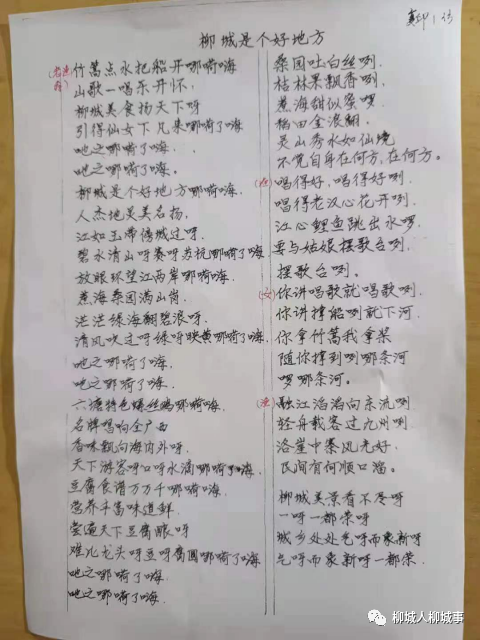 柳城是个好地方
竹篙点水把船开哪嗬嗨
山歌一唱乐开怀.
柳城美食扬天下呀
引得仙女下凡来哪嗬了嗨
地之哪嗬了嗨.
地之哪嗬了嗨。
柳城是个好地方哪嗬嗨.
人杰地灵美名扬.
江如玉带傍城过呀.
碧水清山呀赛呀苏杭哪嗬了嗨
放眼环望江两岸哪嗬嗨.
蔗海桑园满山岗.
茫茫绿海翻碧浪呀.
清风吹过呀绿呀映黄哪嗬了嗨
地之哪嗬了嗨.
地之哪嗬了嗨.
六塘特色螺丝鸡哪嗬嗨.
名牌唱响全广西
香味飘向海内外呀.
天下游客呀口呀水滴哪嗬了嗨
豆腐食谱万万千哪嗬嗨.
营养丰富味道鲜.
尝遍天下豆腐酿呀
难比龙头呀豆呀腐圆哪嗬了嗨
地之哪嗬了嗨
地之哪嗬了嗨.
桑园吐白丝咧.
桔林果飘香咧.
蔗海甜似蜜啰
稻田金浪翻.
灵山秀水如仙境
不觉自身在何方,在何方。
唱得好,唱得好咧.
唱得老汉心花开咧.
江心鲤鱼跳出水啰.
要与姑娘摆歌台咧.
摆歌台咧.
(女) 你讲唱歌就唱歌咧.
你讲撑船咧就下河.
你拿竹篙我拿桨
随你撑到咧哪条河
啰哪条河。
融江滔滔向东流咧
轻舟载客过九州咧.
洛崖中寨风光好.
民间有何顺口溜。
柳城美景看不尽呀
一呀一都荣呀
城乡处处气呀而象新呀
气呀而象新呀一都荣.
柳城人柳城事